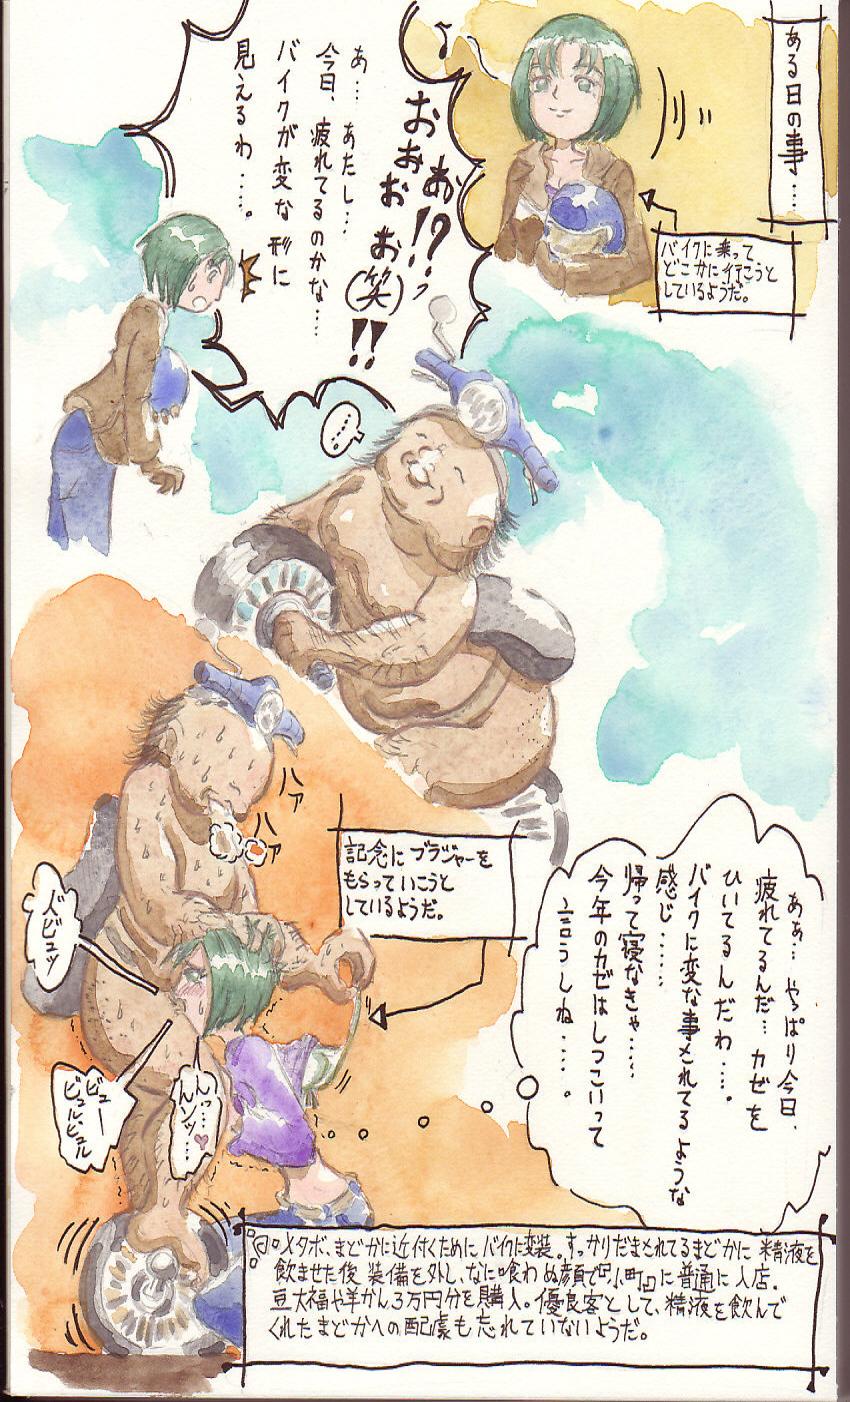 ある日の事……
バイクに乗って
どこかに行こうと
しているようだ。
お!?
おおお
おぉ(笑)!!
あ…あたし…
今日、疲れてるのかな……
バイクが変な形に
見えるわ……。
……。
ハァ
ハァ
記念にブラジャーを
もらっていこうと
しているようだ。
ドビュッ
ビュー
ビュルビュル
んっ…
んンッ…♥
あぁ…やっぱり今日、
疲れてるんだ…カゼを
ひいてるんだわ……。
バイクに変な事されてるような
感じ……
帰って寝なきゃ……
今年のカゼはしつこいって
言うしね……。
メタボ、まどかに近付くためにバイクに変装。すっかりだまされてるまどかに精液を
飲ませた後 装備を外し、なに喰わぬ顔で『小町』に普通に入店.
豆大福や羊かん3万円分を購入。優良客として、精液を飲んで
くれたまどかへの配慮も忘れていないようだ。